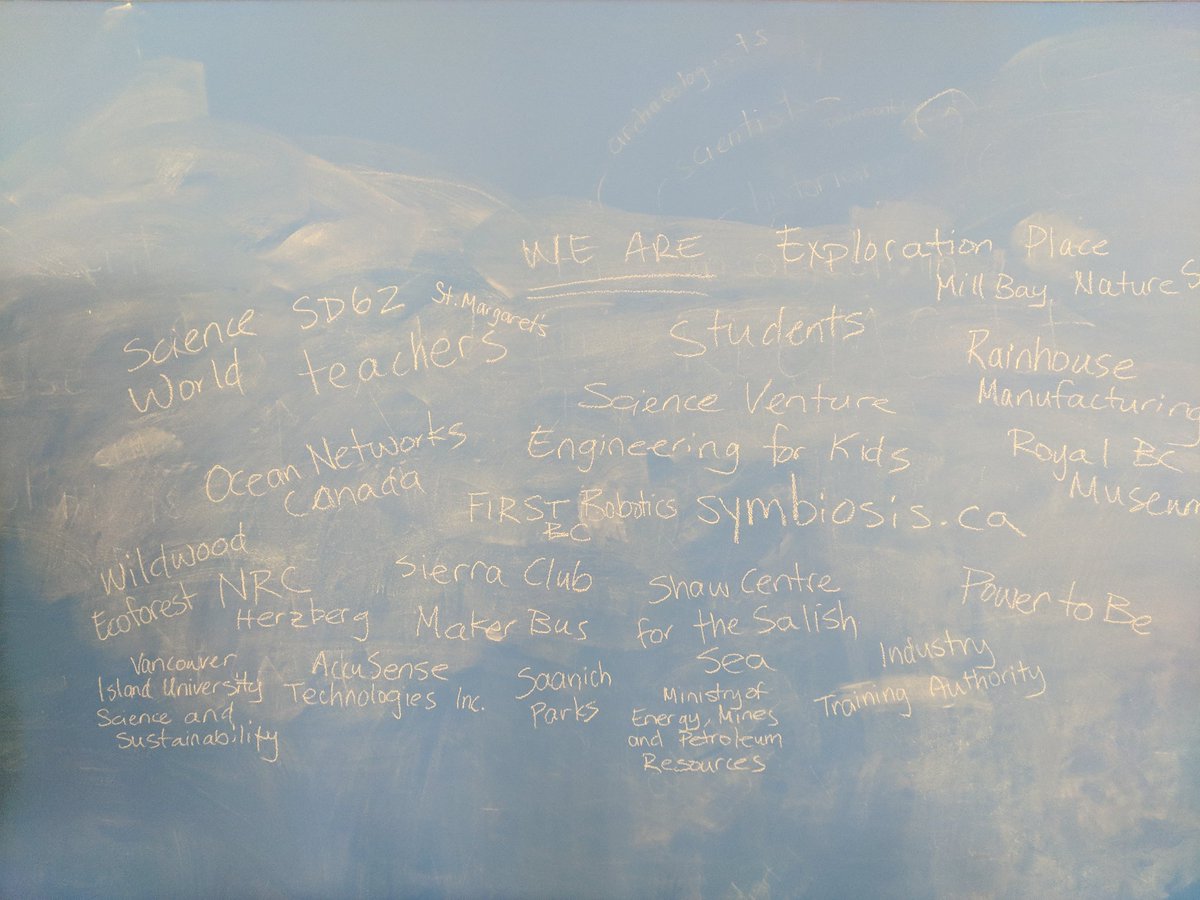 archaeologists
scientist
historian
WE ARE
Exploration Place
Mill Bay Nature S
Science
World
SD62
St. Margaret's
teachers
Students
Rainhouse
Manufacturing
Science Venture
Ocean Networks
Canada
Engineering for Kids
Royal BC
Museum
FIRST Robotics
BC
symbiosis.ca
Wildwood
Ecoforest
NRC
Herzberg
Sierra Club
Maker Bus
Shaw Centre
for the Salish
Sea
Power to Be
Vancouver
Island University
Science and
Sustainability
AckuSense
Technologies Inc.
Saanich
Parks
Ministry of
Energy, Mines
and Petroleum
Resources
Industry
Training Authority